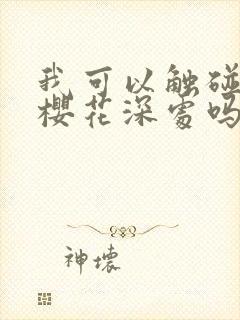 我可以触碰
樱花深处吗
神壞